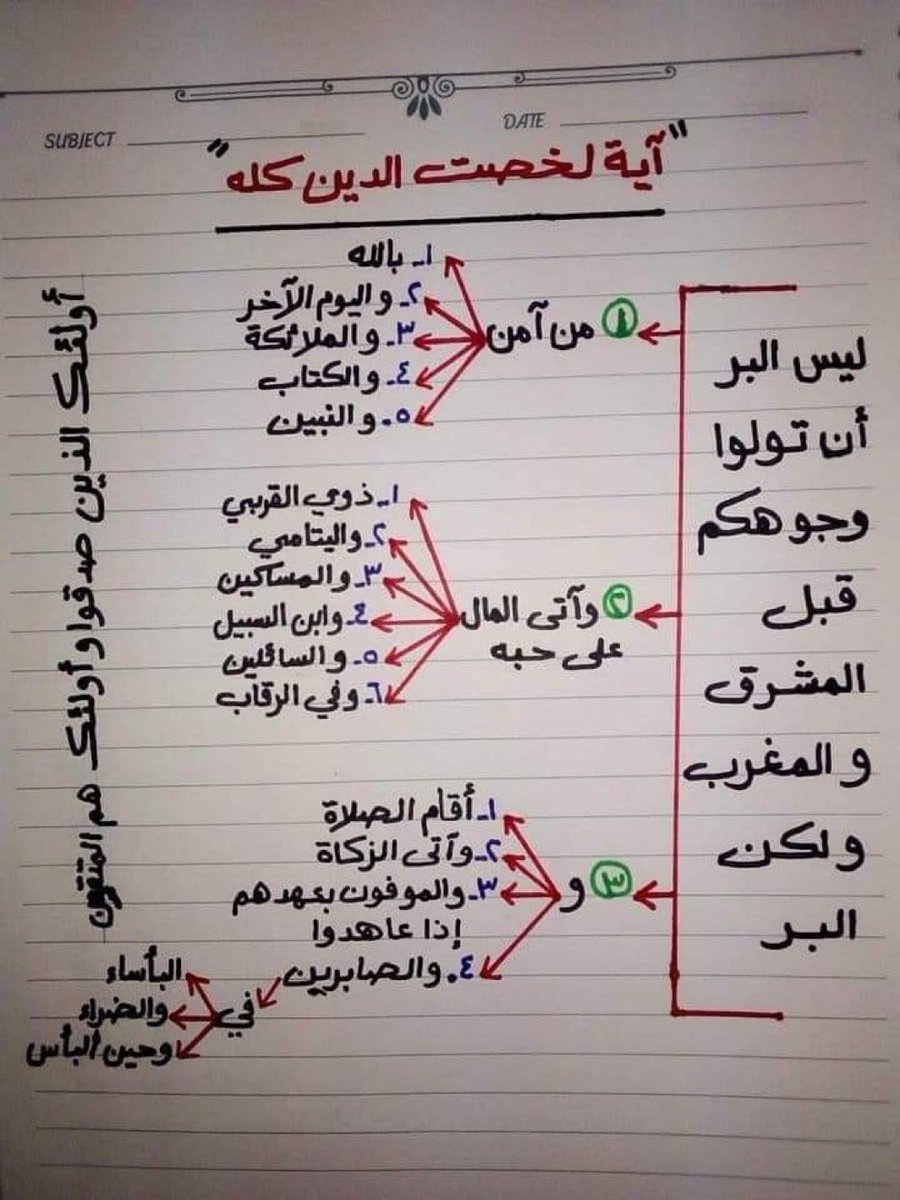 SUBJECT
DATE
"آية لخصت الدين كله"
ليس البر
أن تولوا
وجوهكم
قبل
المشرق
والمغرب
ولكن
البر
١ من آمن
١- بالله
٢- واليوم الآخر
٣- والملائكة
٤- والكتاب
٥- والنبين
٢ وآتى المال
على حبه
١- ذوي القربي
٢- واليتامي
٣- والمساكين
٤- وابن السبيل
٥- والسائلين
٦- وفي الرقاب
٣ و
١- أقام الصلاة
٢- وآتى الزكاة
٣- والموفون بعهدهم
إذا عاهدوا
٤- والصابرين
في
البأساء
والضراء
وحين البأس
أولئك الذين صدقوا وأولئك هم المتقون